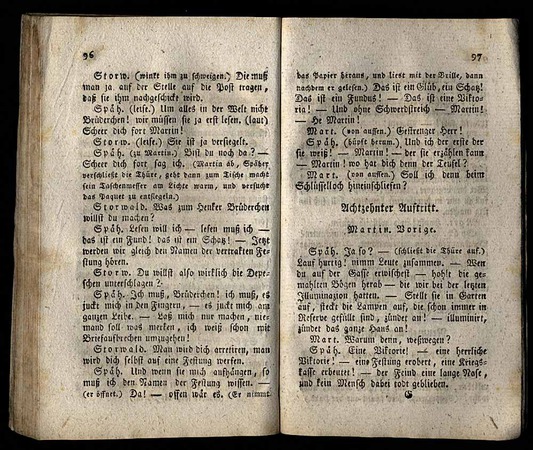 96
Storw. (winkt ihm zu schweigen.) Die muß
man ja auf der Stelle auf die Post tragen,
daß sie ihm nachgeschickt wird.
Späh. (leise.) Um alles in der Welt nicht
Brüderchen! wir müssen sie ja erst lesen, (laut)
Scheer dich fort Martin!
Storw. (leise.) Sie ist ja versiegelt.
Späh. (zu Martin.) Bist du noch da? —
Scheer dich fort sag ich. (Martin ab, Späher
verschließt die Thüre, geht dann zum Tische macht
sein Taschenmesser am Lichte warm, und versucht
das Paquet zu entsiegeln.)
Storwald. Was zum Henker Brüderchen
willst du machen?
Späh. Lesen will ich — lesen muß ich —
das ist ein Fund! das ist ein Schatz! — Jetzt
werden wir gleich den Namen der vertrakten Fe-
stung hören.
Storw. Du willst also wirklich die Depe-
schen unterschlagen?
Späh. Ich muß, Brüderchen! ich muß, es
juckt mich in den Fingern, — es juckt mich am
ganzen Leibe. — Laß mich nur machen, nie-
mand soll was merken, ich weiß schon mit
Briefaufbrechen umzugehen!
Storwald. Man wird dich arretiren, man
wird dich selbst auf eine Festung werfen.
Späh. Und wenn sie mich aufhängen, so
muß ich den Namen der Festung wissen. —
(er öffnet.) Da! — offen wär es. (Er nimmt
97
das Papier heraus, und liest mit der Brille, dann
nachdem er gelesen.) Das ist ein Glück, ein Schatz!
Das ist ein Fundus! — Das ist eine Vikto-
ria! — Und ohne Schwerdstreich — Martin!
— He Martin!
Mart. (von aussen.) Gestrenger Herr!
Späh. (hüpft herum.) Und ich der erste der
sie weiß! — Martin! — der sie erzählen kann
— Martin! wo hat dich denn der Teufel?
Mart. (von aussen.) Soll ich denn beim
Schlüsselloch hineinschliefen?
Achtzehnter Auftritt.
Martin. Vorige.
Späh. Ja so? — (schließt die Thüre auf.)
Lauf hurtig! nimm Leute zusammen. — Wen
du auf der Gasse erwischest — hohlt die ge-
mahlten Bögen herab — die wir bei der letzten
Illuminazion hatten. — Stelle sie in Garten
auf, steckt die Lampen auf, die schon immer in
Reserve gefüllt sind, zündet an! — illuminirt,
zündet das ganze Haus an!
Mart. Warum denn, weswegen?
Späh. Eine Viktorie! — eine herrliche
Viktorie! — eine Festung erobert, eine Kriegs-
kasse erbeutet! — der Feind eine lange Nase,
und kein Mensch dabei todt geblieben.
G